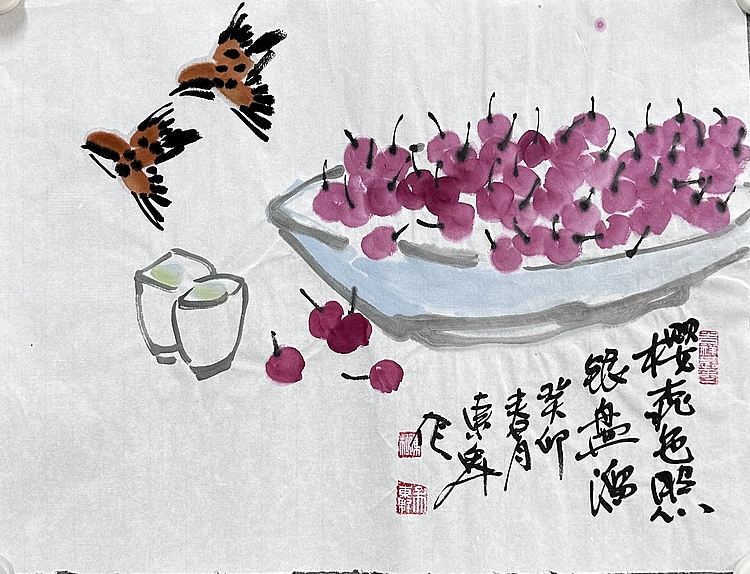 樱桃色照
银盘溜
癸卯
春月
東
作